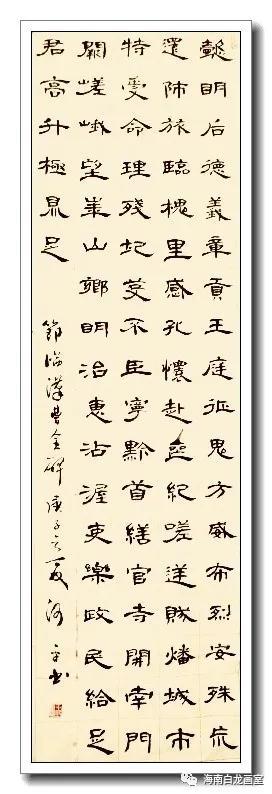 懿明后德義章貢王庭征鬼方威布烈安殊巟
還師旅臨槐里感孔懷赴喪紀嗟逆賊燔城市
特受命理殘圮芟不臣寧黔首繕官寺開南門
闕嵯峨望華山鄉明治惠沾渥吏樂政民給足
君高升極鼎足
節临漢曹全碑 庚子之夏 书
海南白龙画室